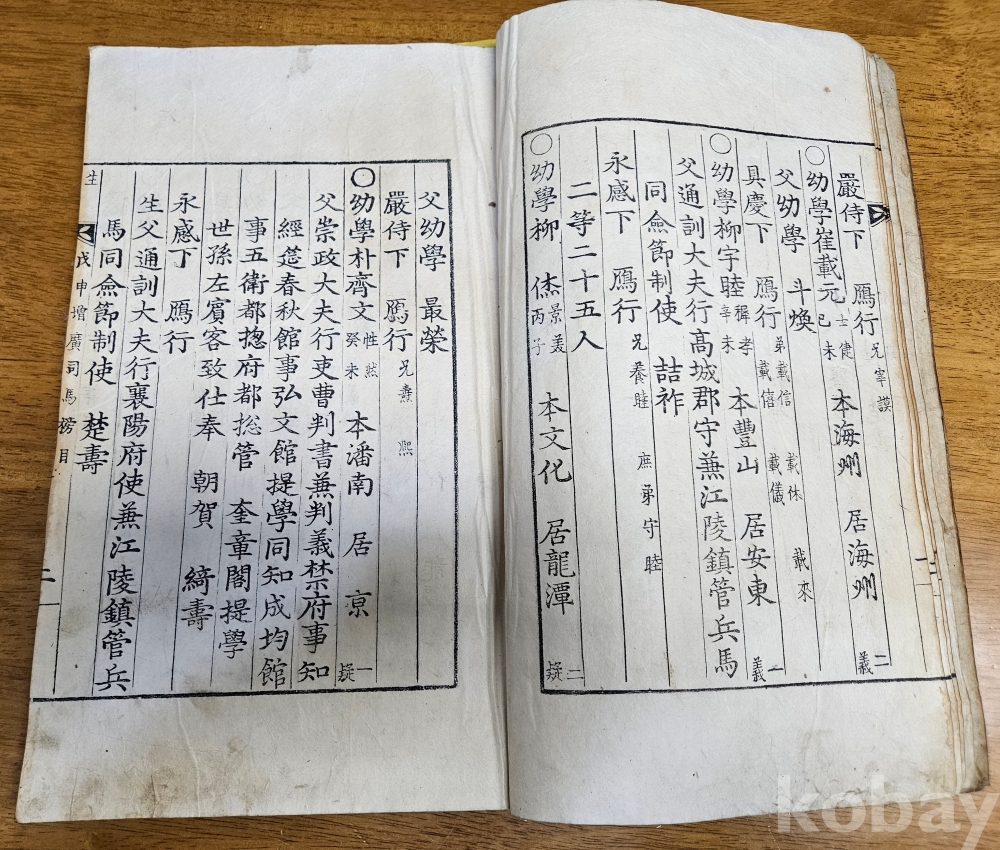 嚴侍下 鴈行 兄宰謨
○幼學崔載元 士健 己未 本海州 居海州 二義
父幼學 斗煥
具慶下 鴈行 弟載信 載僖 載休 載儀 載來
○幼學柳宇睦 穉孝 辛未 本豐山 居安東 一義
父通訓大夫行高城郡守兼江陵鎮管兵馬
同僉節制使 喆祚
永感下 鴈行 兄養睦 庶弟守睦
二等二十五人
○幼學柳 景羙 丙子 本文化 居龍潭 二疑
父幼學 最榮
嚴侍下 鴈行 兄熹 熙
○幼學朴齊文 性然 癸未 本潘南 居京 一疑
父崇政大夫行吏曹判書兼判義禁府事知
經筵春秋館事弘文館提學同知成均館
事五衛都摠府都摠管 奎章閣提學
世孫左賓客致仕奉 朝賀 綺壽
永感下 鴈行
生父通訓大夫行襄陽府使兼江陵鎮管兵
馬同僉節制使 楚壽
生 戊申增廣司馬榜目 二
kobay